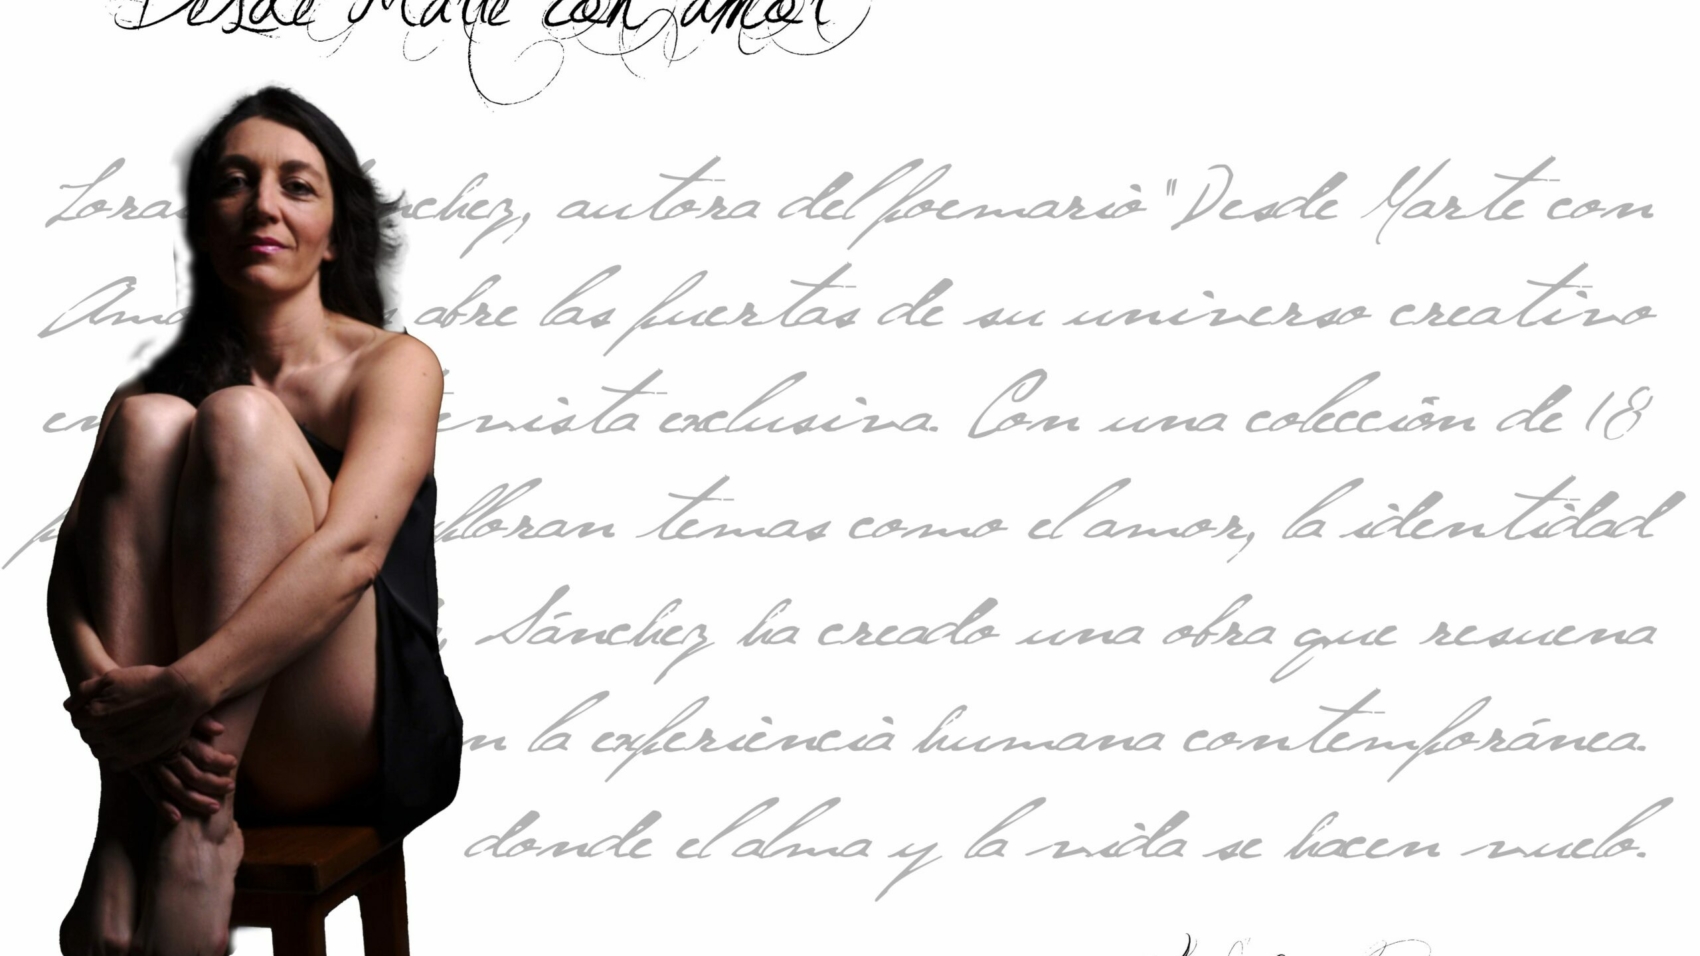 Desde Marte con amor
nchez, autora del poemario "Desde Marte con
Am abre las puertas de su universo creativo
en evista exclusiva. Con una colección de 18
p floran temas como el amor, la identidad
Sánchez ha creado una obra que resuena
n la experiencia humana contemporánea.
donde el alma y la vida se hacen vuelo.